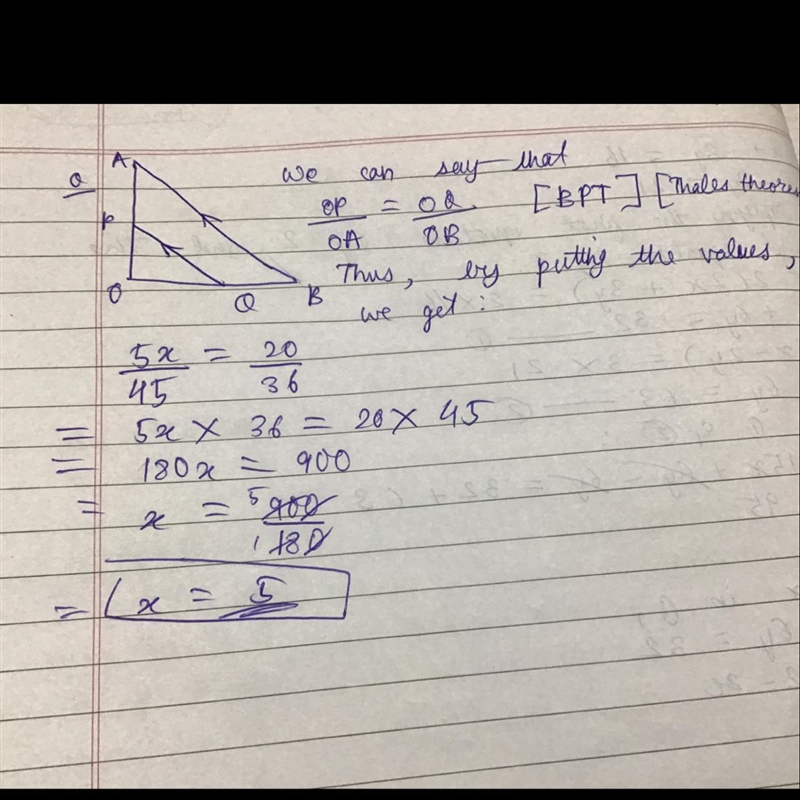 Q
A
P
O
Q
B
we can say that
OP/OA = OQ/OB [BPT] [Thales theorem
Thus, by putting the values,
we get:
5x/45 = 20/36
= 5x × 36 = 20 × 45
= 180x = 900
= x = 5 900/180 1
= x = 5